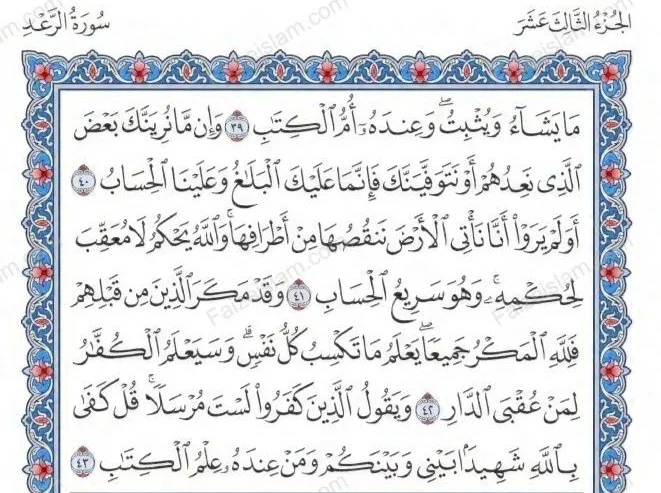 الجُزْءُ الثَّالِثَ عَشَرَ سُورَةُ الرَّعْدِ
مَا يَشَآءُ وَيُثۡبِتُۖ وَعِندَهُۥٓ أُمُّ ٱلۡكِتَٰبِ ٣٩ وَإِن مَّا نُرِيَنَّكَ بَعۡضَ
ٱلَّذِي نَعِدُهُمۡ أَوۡ نَتَوَفَّيَنَّكَ فَإِنَّمَا عَلَيۡكَ ٱلۡبَلَٰغُ وَعَلَيۡنَا ٱلۡحِسَابُ ٤٠
أَوَلَمۡ يَرَوۡاْ أَنَّا نَأۡتِي ٱلۡأَرۡضَ نَنقُصُهَا مِنۡ أَطۡرَافِهَاۚ وَٱللَّهُ يَحۡكُمُ لَا مُعَقِّبَ
لِحُكۡمِهِۦۚ وَهُوَ سَرِيعُ ٱلۡحِسَابِ ٤١ وَقَدۡ مَكَرَ ٱلَّذِينَ مِن قَبۡلِهِمۡ
فَلِلَّهِ ٱلۡمَكۡرُ جَمِيعٗاۖ يَعۡلَمُ مَا تَكۡسِبُ كُلُّ نَفۡسٖۗ وَسَيَعۡلَمُ ٱلۡكُفَّٰرُ
لِمَنۡ عُقۡبَى ٱلدَّارِ ٤٢ وَيَقُولُ ٱلَّذِينَ كَفَرُواْ لَسۡتَ مُرۡسَلٗاۚ قُلۡ كَفَىٰ
بِٱللَّهِ شَهِيدَۢا بَيۡنِي وَبَيۡنَكُمۡ وَمَنۡ عِندَهُۥ عِلۡمُ ٱلۡكِتَٰبِ ٤٣